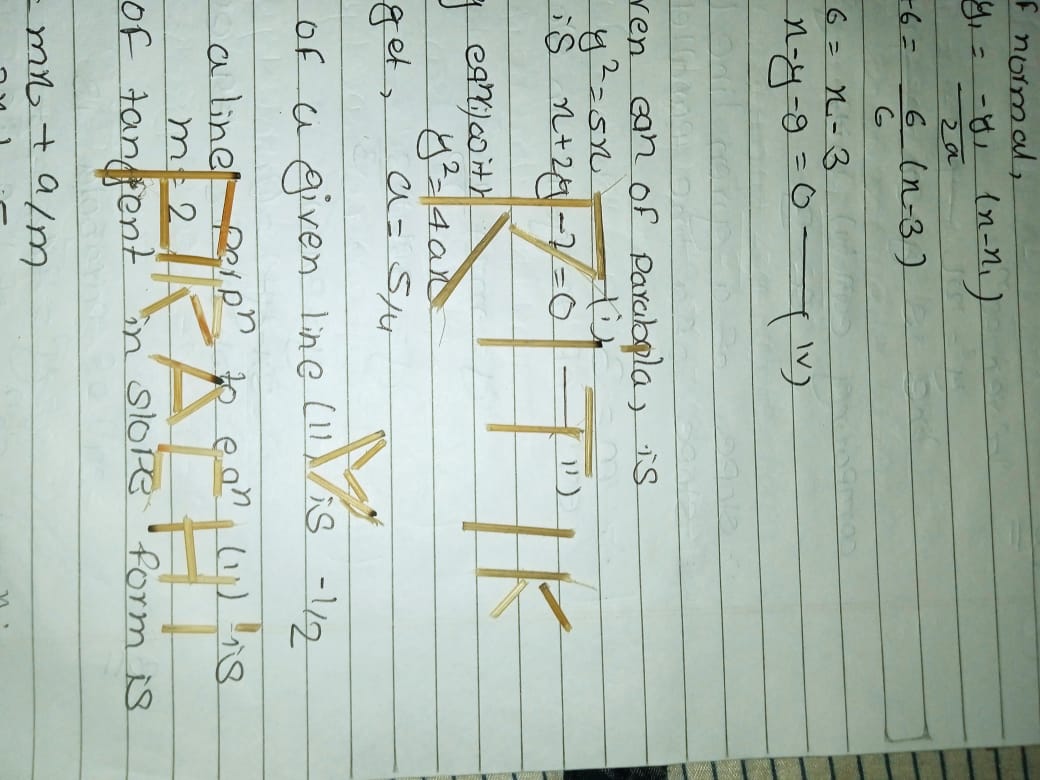 F normal,
y₁ = -y₁/2a (x-x₁)
+6 = 6/6 (x-3)
6 = x - 3
x-y-9=0 —(IV)
ven eqn of parabola, is
y²=5x —(i)
is x+2y-7=0 —(ii)
RITIK
eqn(i) with
y²=4ax
get, a = 5/4
of a given line (ii) is -1/2
a line perpⁿ to eqⁿ (ii) is
PRACHI
m = 2
of tangent in slope form is
mx + a/m